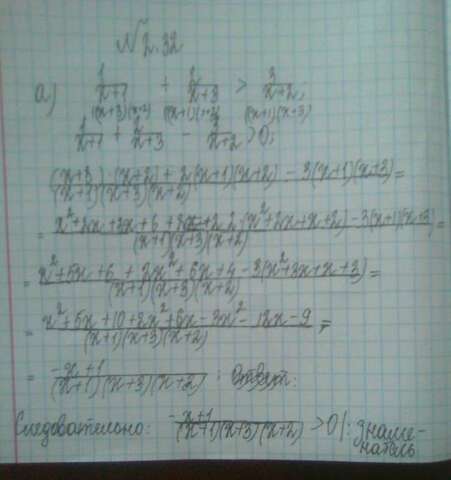 №2.32
а) 1/(x+1) + 2/(x+3) > 3/(x+2);
(x+3)(x+2) (x+1)(x+2) (x+1)(x+3)
1/(x+1) + 2/(x+3) - 3/(x+2) > 0;
((x+3)·(x+2) + 2(x+1)(x+2) - 3(x+1)(x+3))/((x+1)(x+3)(x+2)) =
(x+1)(x+3)(x+2)
= (x²+5x+6 + 2x²+6x+4 - 3(x²+3x+x+3))/((x+1)(x+3)(x+2)) =
= (x²+5x+10+2x²+6x-3x²-12x-9)/((x+1)(x+3)(x+2)) =
= (-x+1)/((x+1)(x+3)(x+2)); Ответ:
Следовательно: (-x+1)/((x+1)(x+3)(x+2)) > 0 |: знаме-
натель